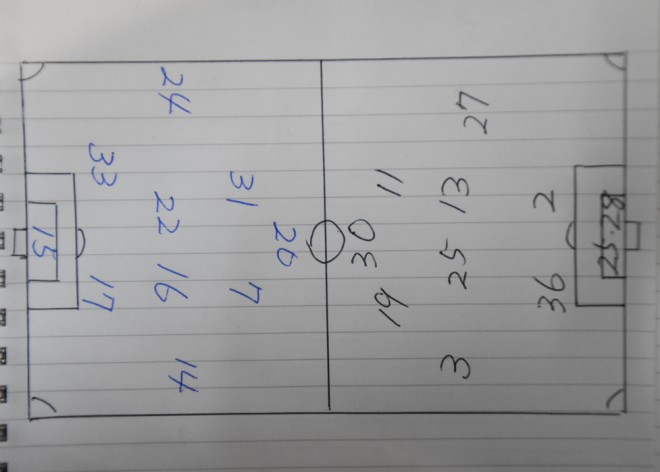 24
27
33
31
11
13
2
22
30
15
16
25
17
7
36
19
14
3